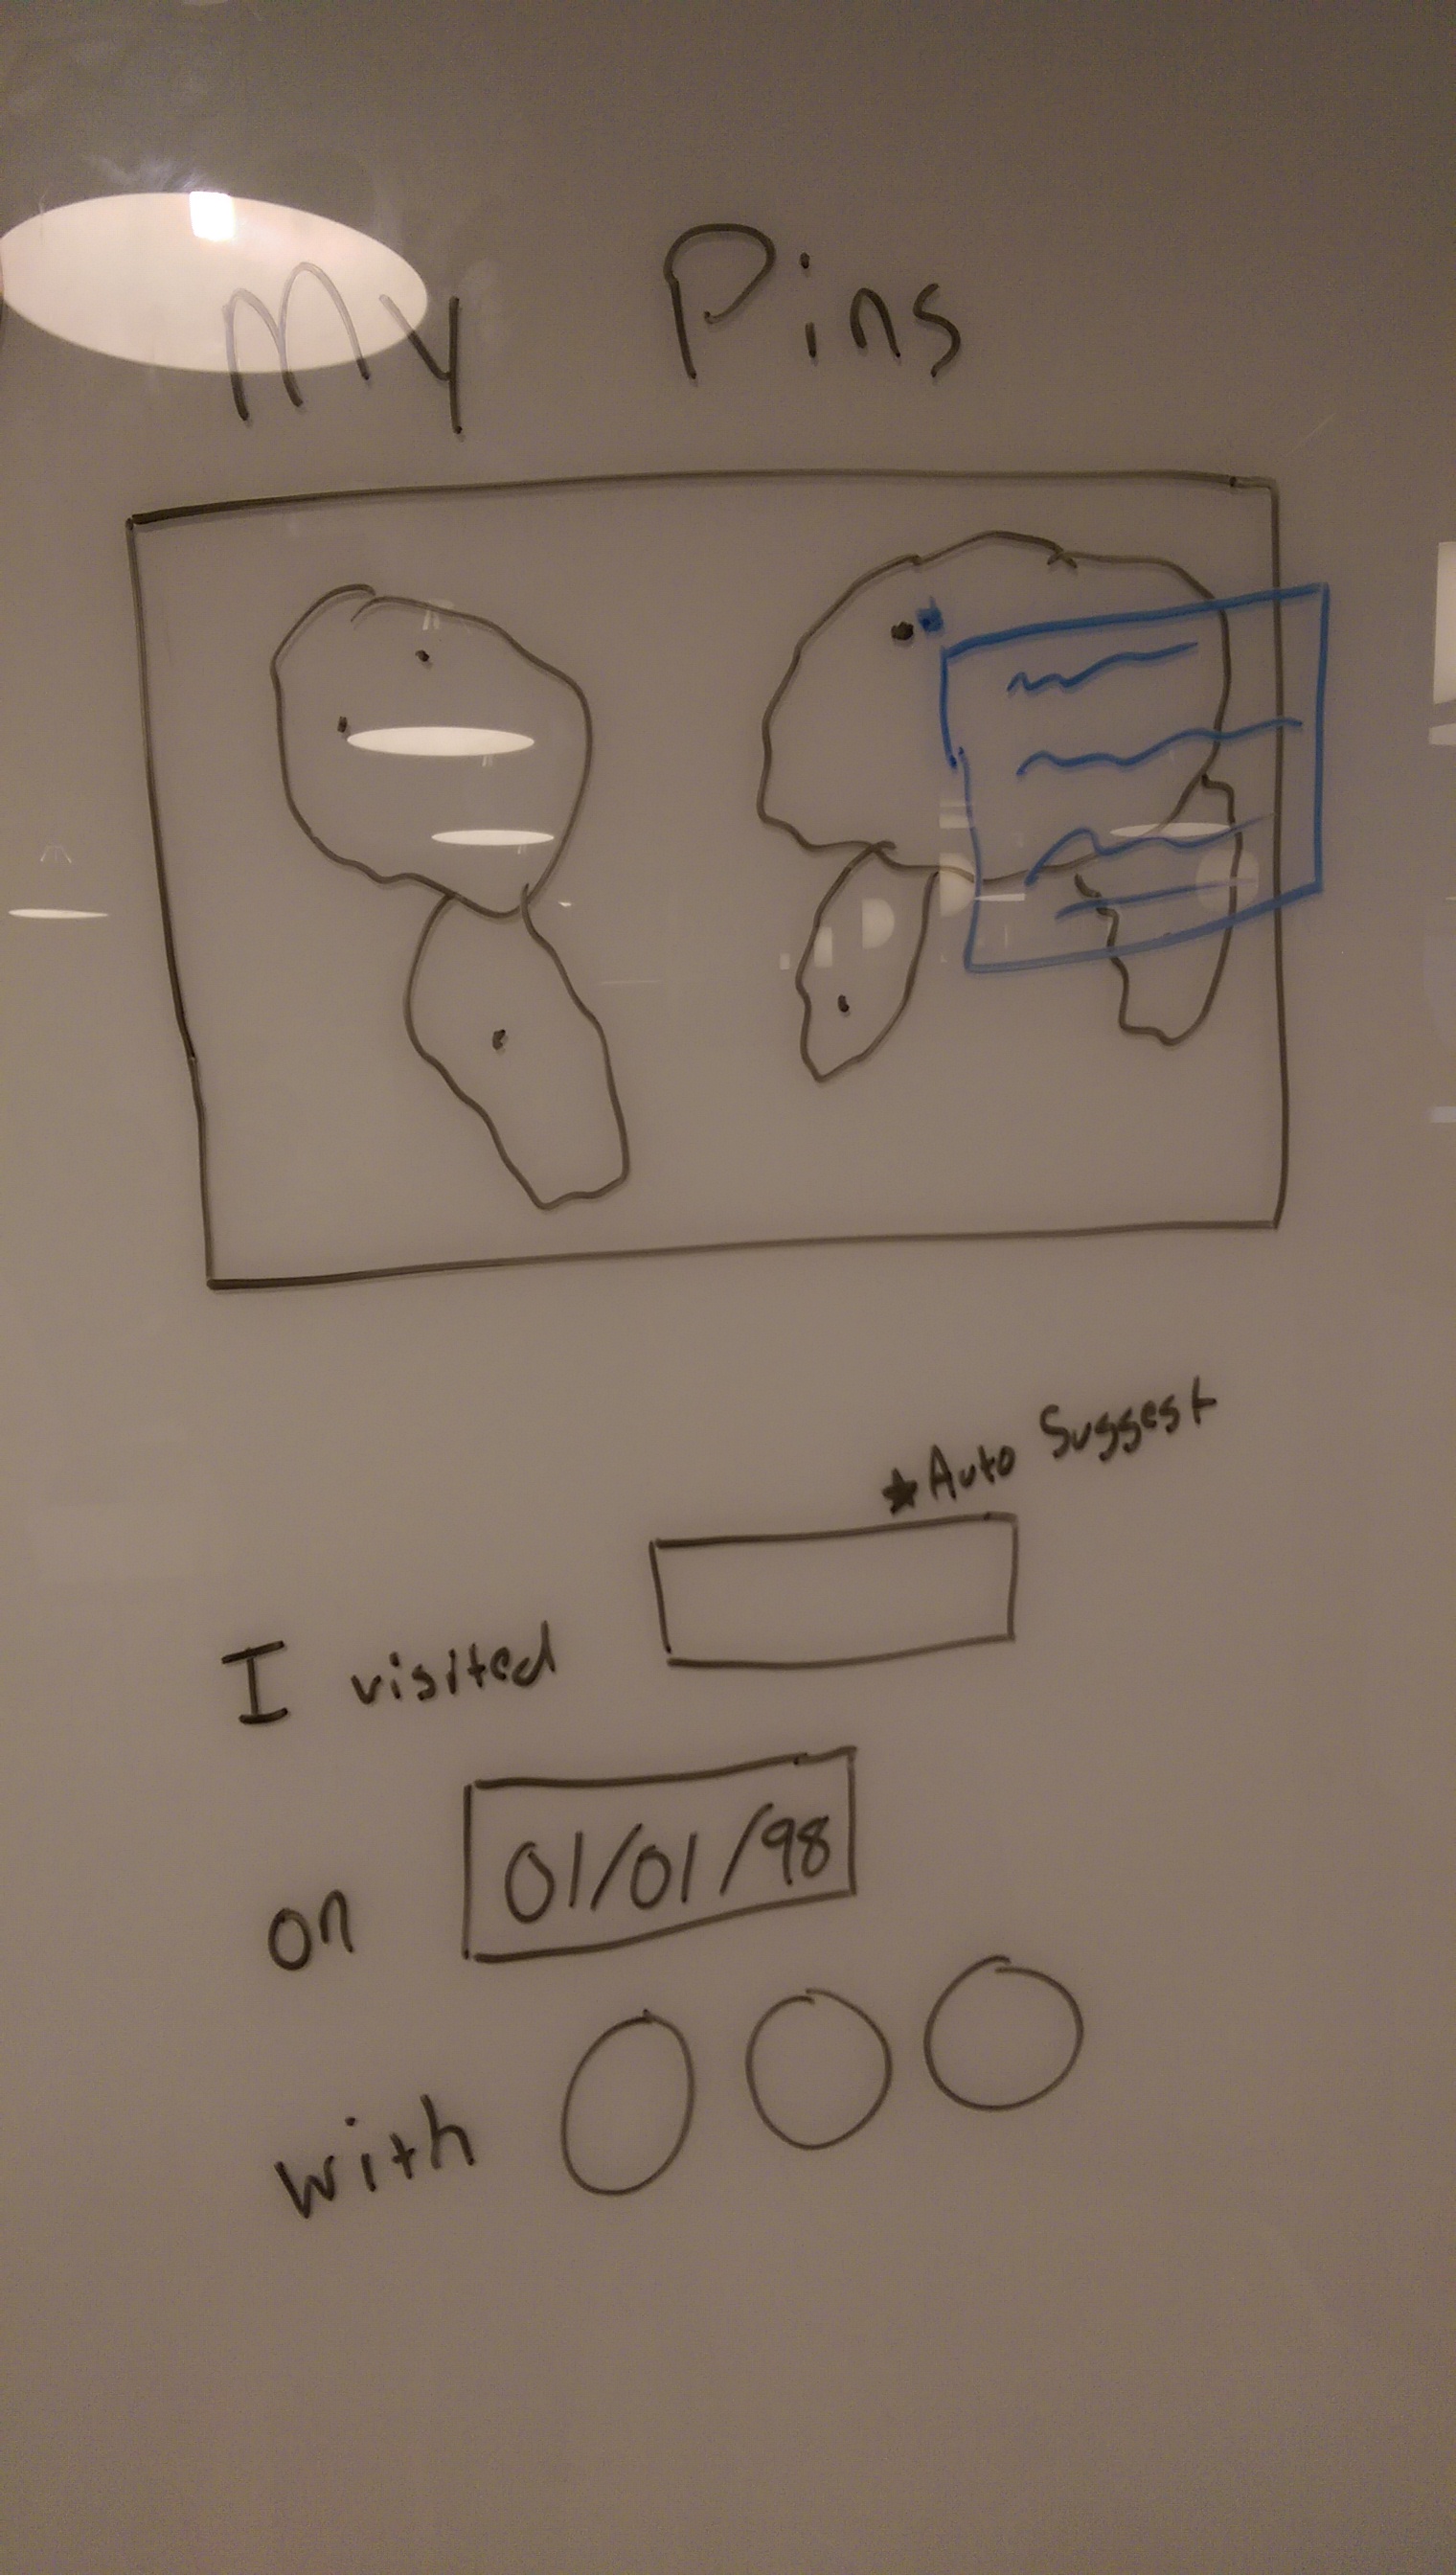 My Pins
★ Auto Suggest
I visited
on 01/01/98
with